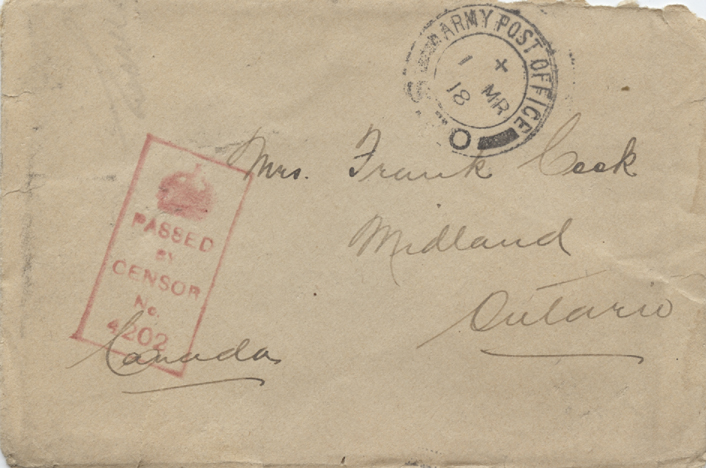 ARMY POST OFFICE
X
1 MR
18
Mrs. Frank Cook
Midland
Ontario
Canada
PASSED
BY
CENSOR
No.
4202